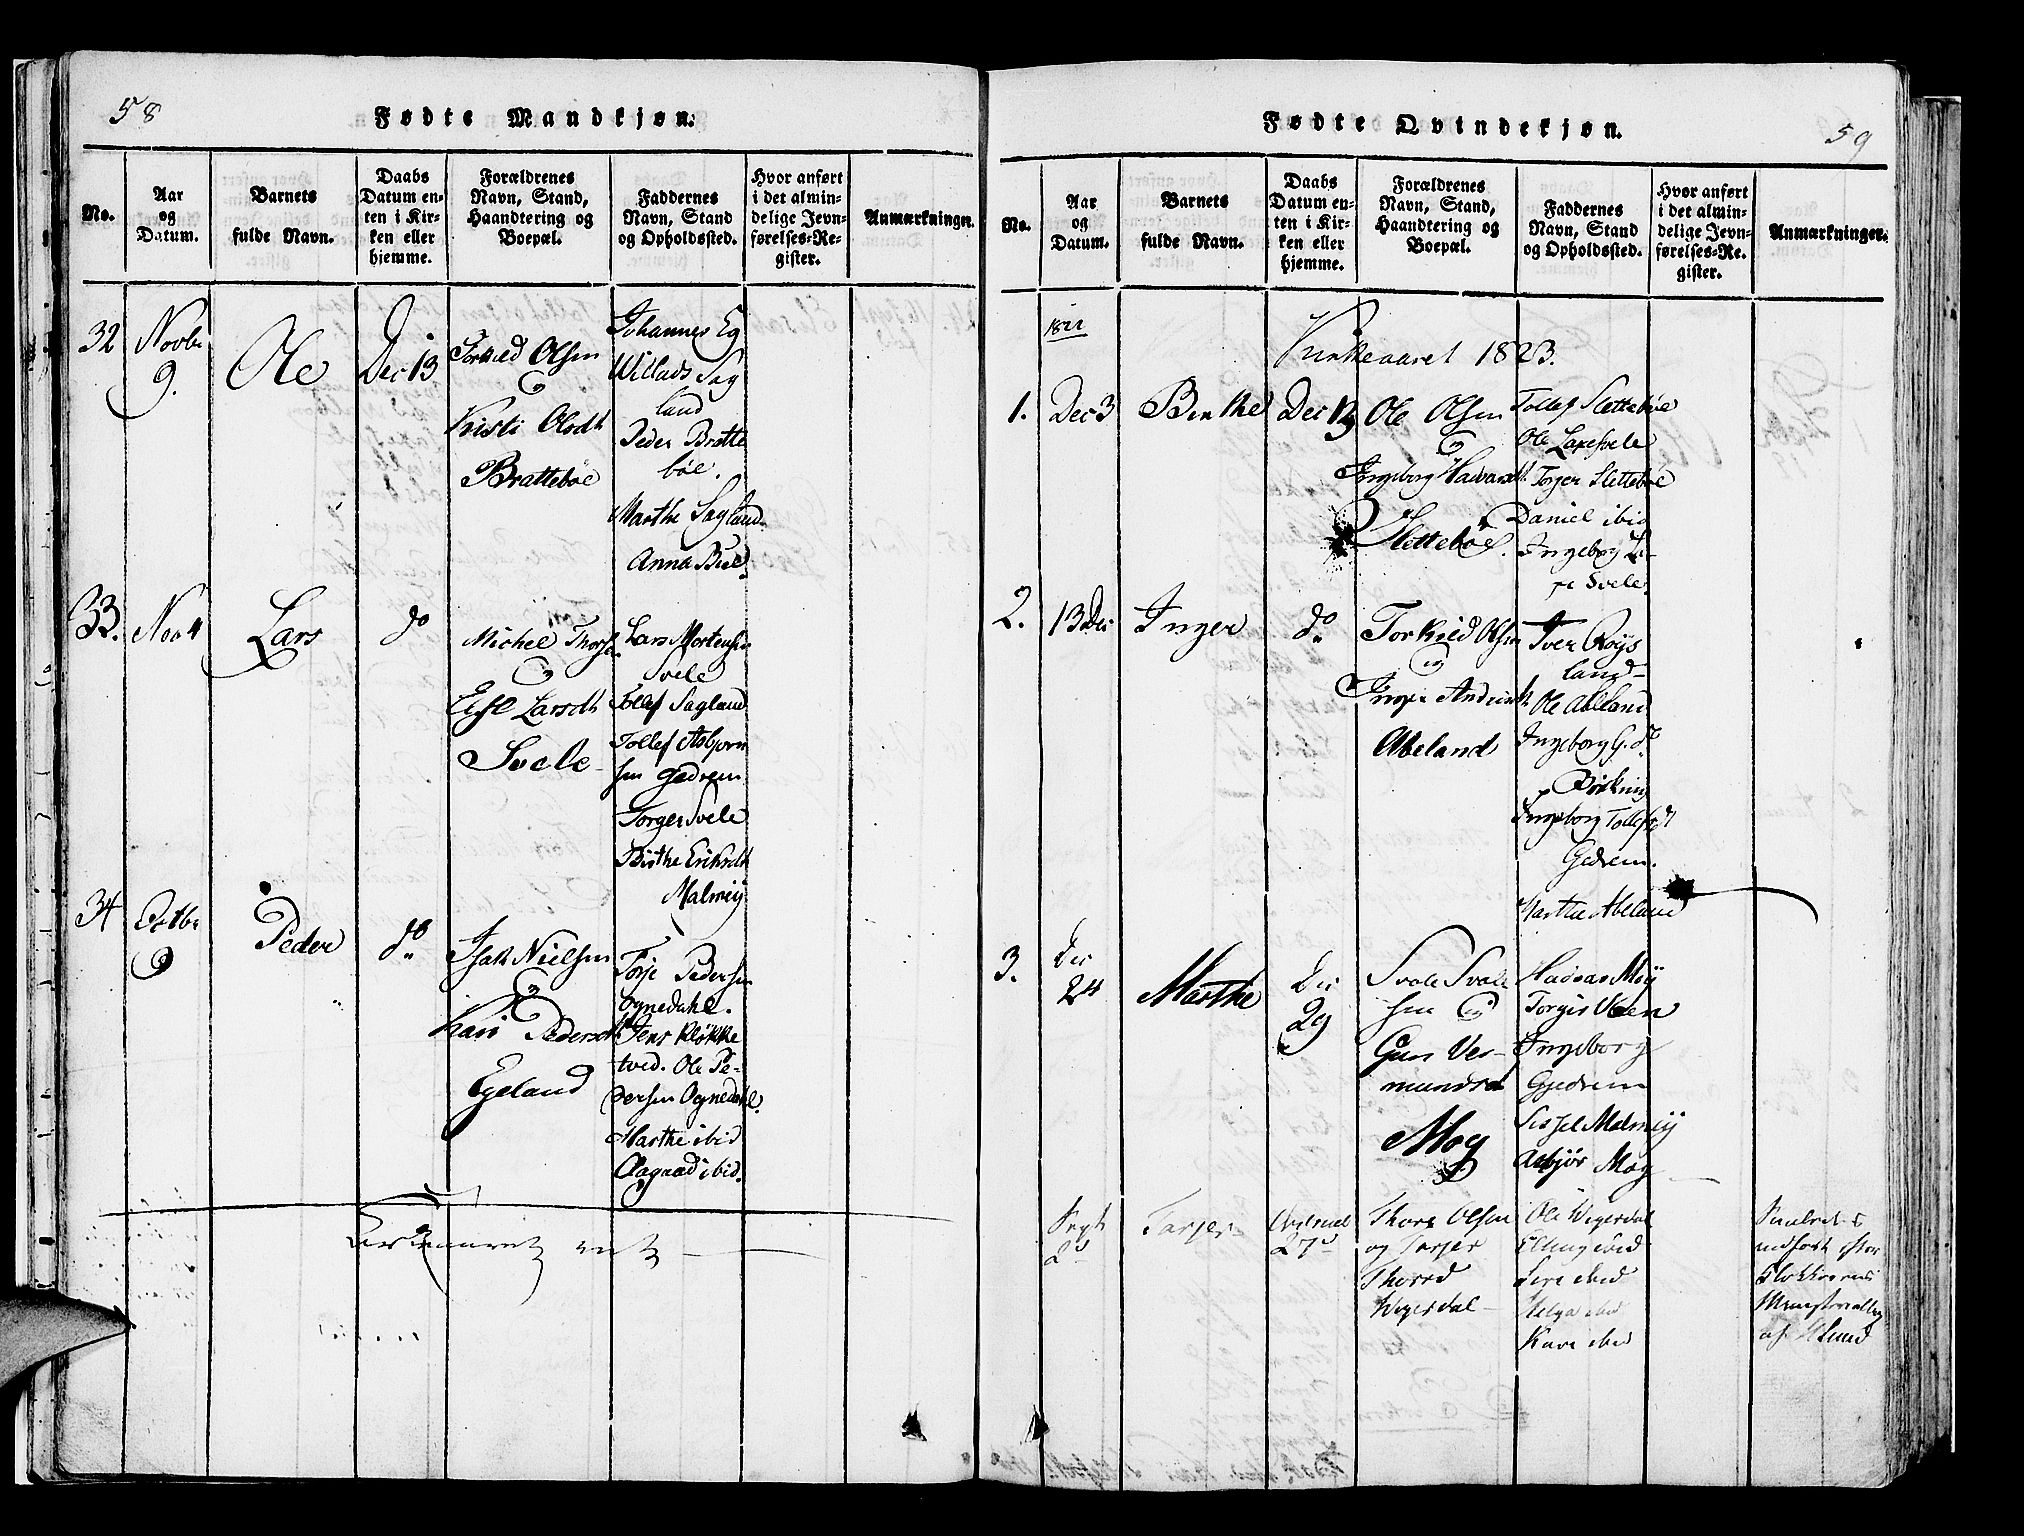 58
Fødte Mandkjøn.
No.
Aar
og
Datum.
Barnets
fulde Navn.
Daabs
Datum en-
ten i Kir-
ken eller
hjemme.
Forældrenes
Navn, Stand,
Haandtering og
Boepæl.
Faddernes
Navn, Stand
og Opholdssted.
Hvor anført
i det almin-
delige Jevn-
førelses-Re-
gister.
Anmærkninger.
32
Novbr
9.
Ole
Dec 13
Torkild Olsen
og
Kristi Olsdt
Bratteboe
Johannes Eg
Willads Sag
land
Peder Bratte
boe.
Marthe Sagland.
Anna Bue.
33.
Nov 4
Lars
do
Michel Thorse
og
Else Larsdt
Svele
Lars Mortensen
Svele
Tollef Sagland
Tollef Asbjorn
sen Gedrem
Torger Svele
Birthe Eriksdt
Malmeÿ
34
Octbr
9
Peder
do
Isak Nielsen
og
Kari Pedersdt
Egeland
Torje Pedersen
Ognedahl.
Jens Kløkke
tved. Ole Pe-
dersen Ognedahl.
Marthe ibid
Aagaad ibid.
59
Fødte Qvindekjøn.
No.
Aar
og
Datum.
Barnets
fulde Navn.
Daabs
Datum en-
ten i Kir-
ken eller
hjemme.
Forældrenes
Navn, Stand,
Haandtering og
Boepæl.
Faddernes
Navn, Stand
og Opholdssted.
Hvor anført
i det almin-
delige Jevn-
førelses-Re-
gister.
Anmærkninger.
1822
Kirkeaaret 1823.
1.
Dec 3
Berthe
Dec 13
Ole Olsen
og
Ingeborg Havardt
Slettebøe.
Tollef Slettebøe
Ole Laxesvele
Torger Slettebøe
Daniel ibid
Ingeborg La-
xe Svele.
2.
13 Dec
Inger
do
Torkild Olsen
og
Inger Andersdt
Abeland
Iver Røÿs
land
Ole Abeland
Ingeborg G. dt
Birking
Ingeborg Tollefsdt
Gedrem.
Marthe Abeland
3.
Dec
24
Marthe
Dec
29
Svale Svale
sen og
Guri Ves-
mundsd
Moy
Hadvar Moÿ
Torgis Veen
Ingeborg
Gjedrem
Sissel Malmeÿ
Asbjør Moy
Sept
2d
Torjer
27d
Thore Olsen
og Torjer
Thorsd
Wegerdal
Ole Wegerdal
Elling ibid
Siri ibid
Helga ibid
Kari ibid
indført efter
Klokkerens
af Helund